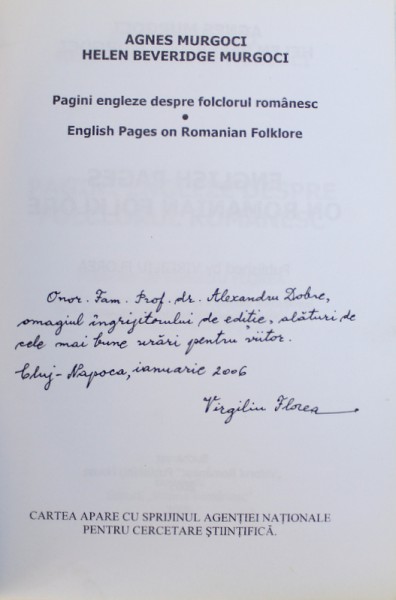 AGNES MURGOCI
HELEN BEVERIDGE MURGOCI
Pagini engleze despre folclorul românesc
•
English Pages on Romanian Folklore
Onor. Fam. Prof. dr. Alexandru Dobre,
omagiul îngrijitorului de ediție, alături de
cele mai bune urări pentru viitor.
Cluj-Napoca, ianuarie 2006
Virgiliu Florea
CARTEA APARE CU SPRIJINUL AGENȚIEI NAȚIONALE
PENTRU CERCETARE ȘTIINȚIFICĂ.